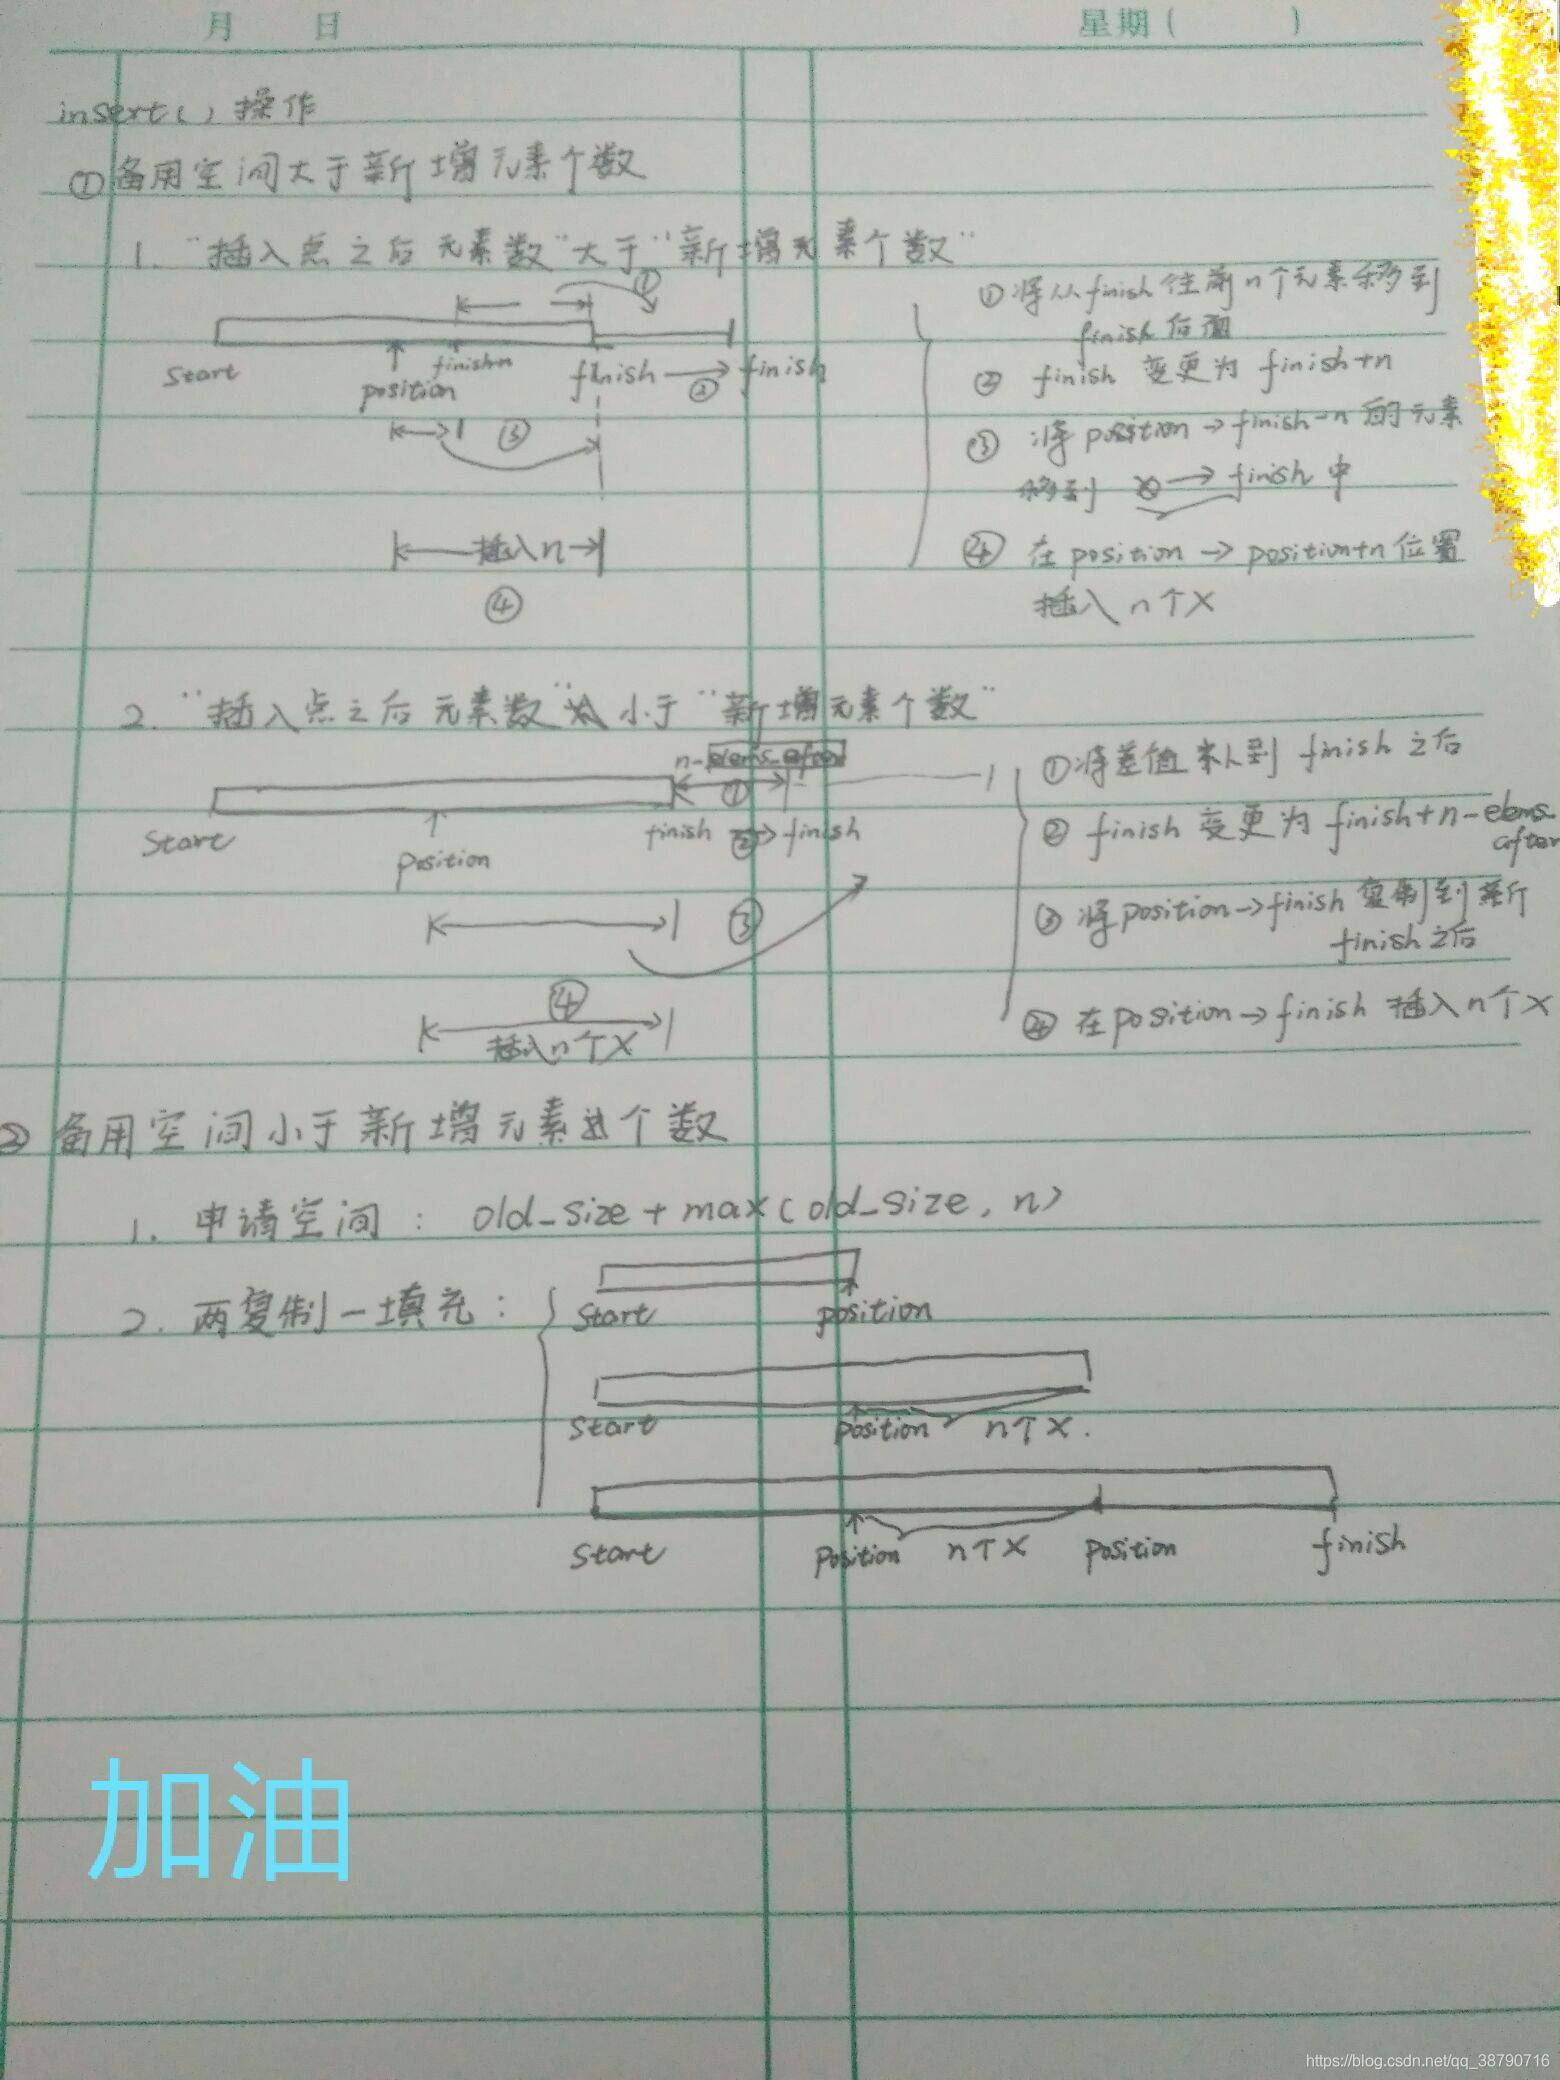 月 日 星期( )
insert() 操作
①备用空间大于新增元素个数
1. "插入点之后元素数"大于"新增元素个数"
①
start
position
finish-n
finish
②
finish
③
插入n
④
①将从finish往前n个元素移到
finish后面
② finish 变更为 finish+n
③ 将position→finish-n的元素
移到 → finish中
④ 在position→position+n位置
插入n个X
2. "插入点之后元素数"小于"新增元素个数"
n-elems_after
①
start
position
finish
②
finish
③
④
插入n个X
①将差值 到 finish之后
② finish 变更为 finish+n-elems
after
③ 将position→finish复制到新
finish之后
④ 在position→finish 插入n个X
② 备用空间小于新增元素个数
1. 申请空间: old_size + max(old_size, n)
2. 两复制一填充:
start position
start position n个X.
start position n个X position finish
加油
https://blog.csdn.net/qq_38790716